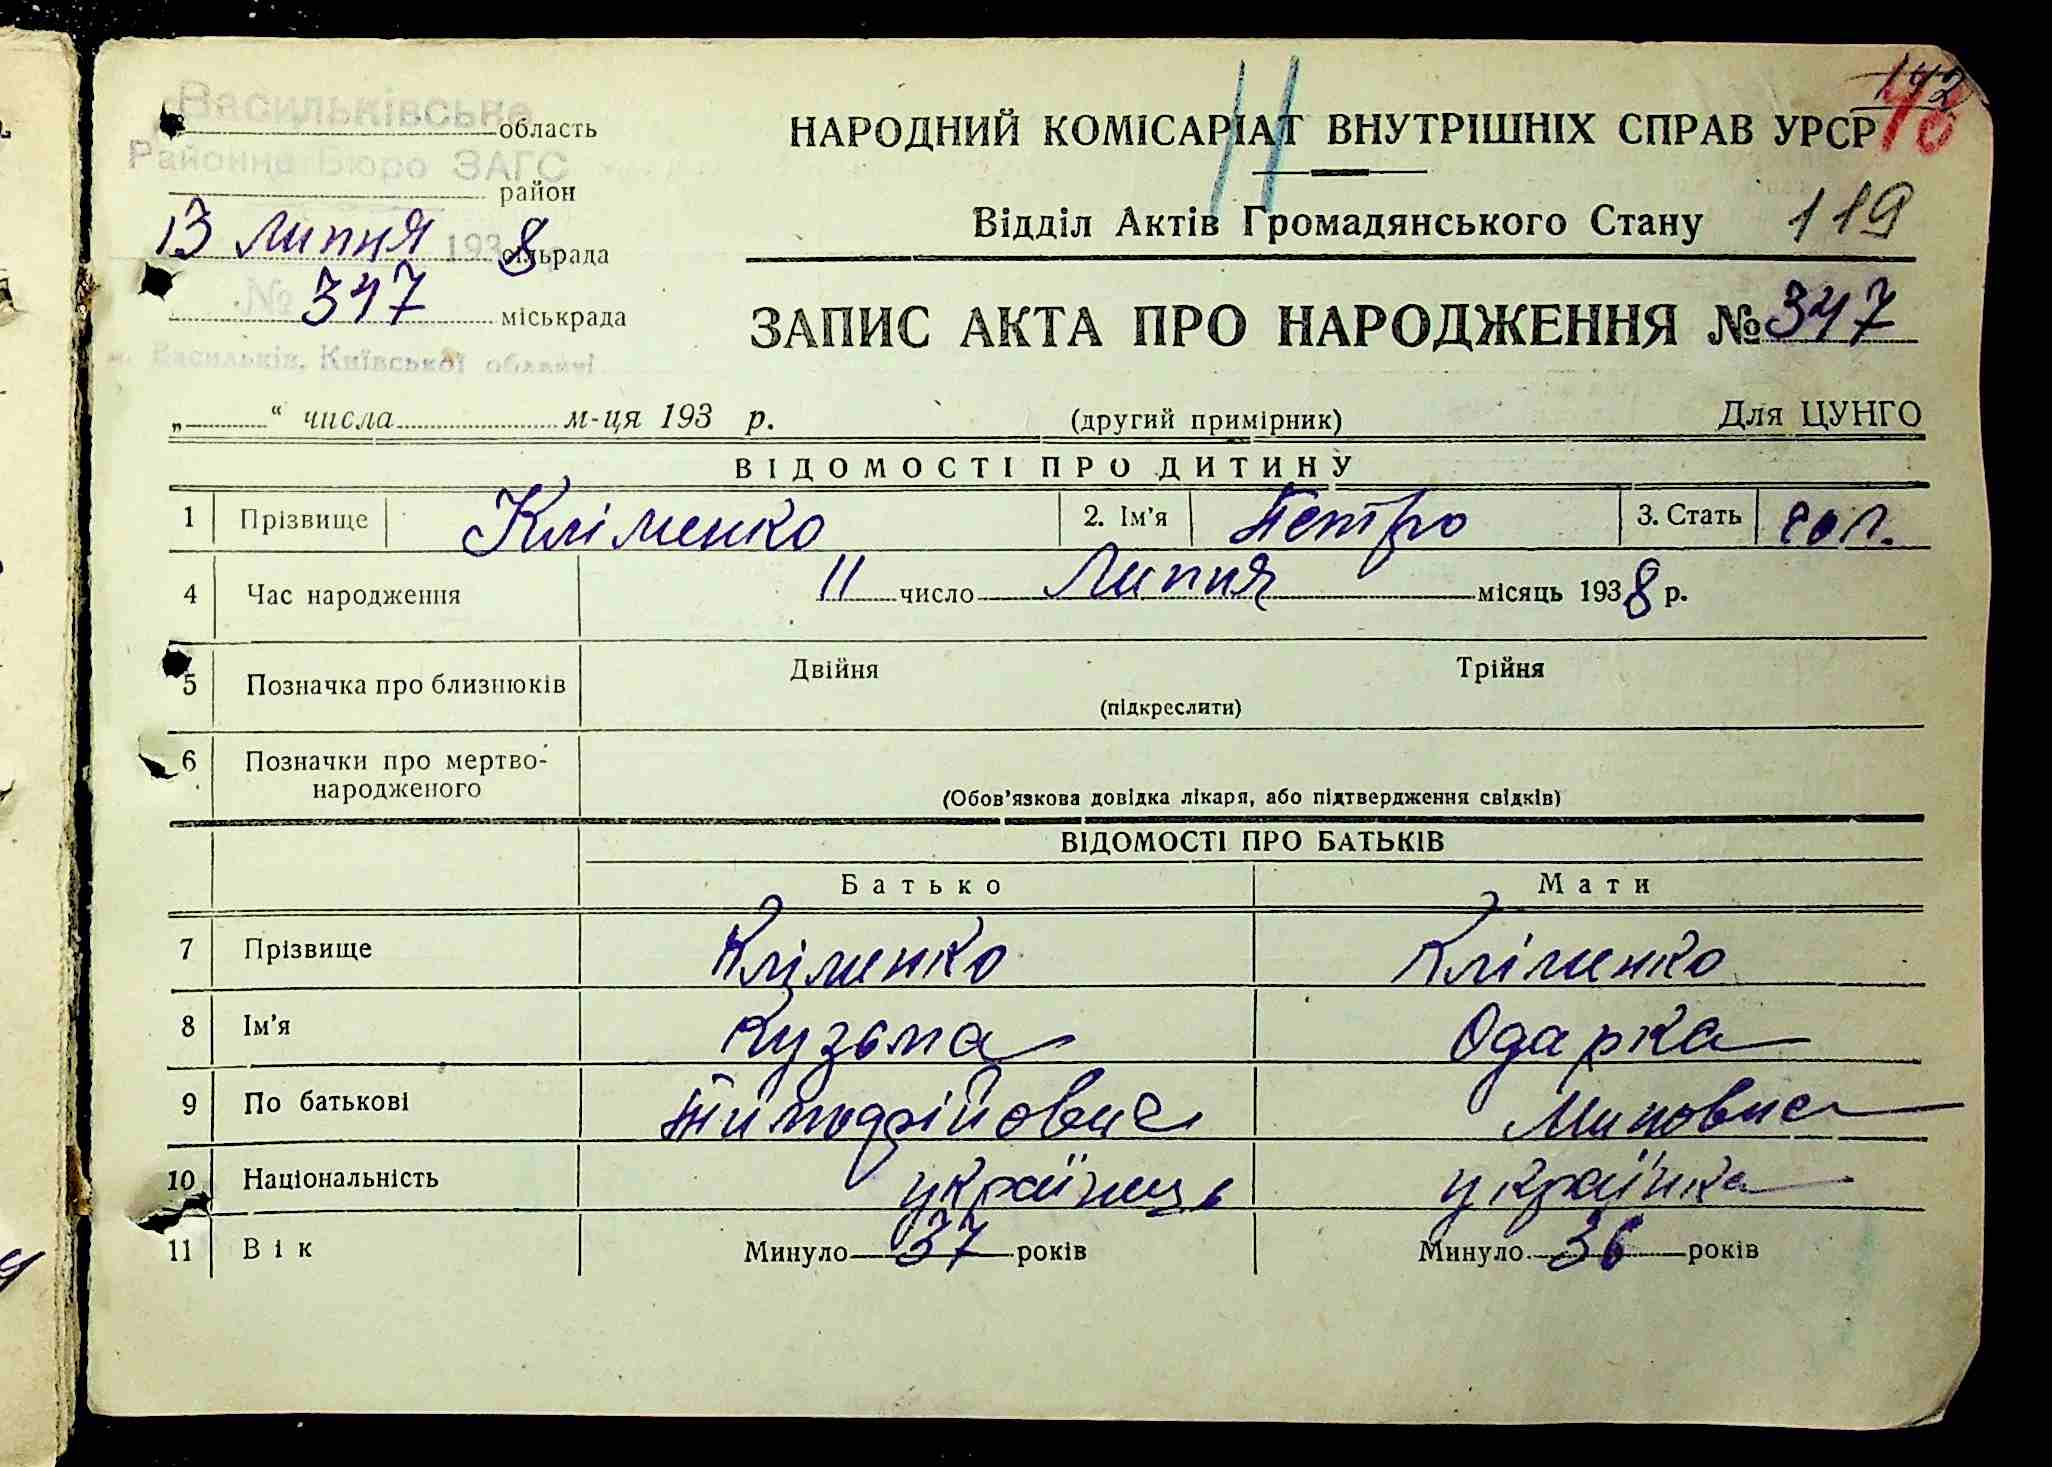 Васильківське
область
Районне Бюро ЗАГС
район
13 Липня 1938
сільрада
№ 347
міськрада
м. Васильків, Київської області
142
НАРОДНИЙ КОМІСАРІАТ ВНУТРІШНІХ СПРАВ УРСР
Відділ Актів Громадянського Стану 119
ЗАПИС АКТА ПРО НАРОДЖЕННЯ № 347
„ “ числа м-ця 193 р. (другий примірник) Для ЦУНГО
ВІДОМОСТІ ПРО ДИТИНУ
1 Прізвище Кліменко 2. Ім'я Петро 3. Стать чол.
4 Час народження 11 число Липня місяць 1938 р.
5 Позначка про близнюків Двійня Трійня
(підкреслити)
6 Позначки про мертво-
народженого
(Обов'язкова довідка лікаря, або підтвердження свідків)
ВІДОМОСТІ ПРО БАТЬКІВ
Батько Мати
7 Прізвище Кліменко Кліменко
8 Ім'я Кузьма Одарка
9 По батькові
10 Національність українець українка
11 Вік Минуло 37 років Минуло 36 років